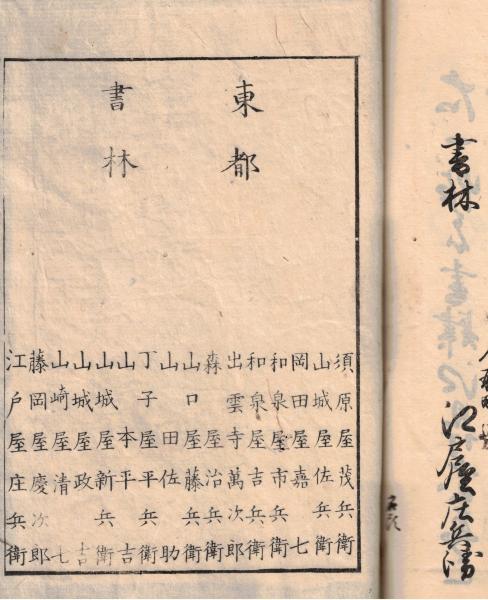 書林
江戸屋庄兵衛
東都
書林
須原屋茂兵衛
山城屋佐兵衛
岡田屋嘉七
和泉屋市兵衛
和泉屋吉兵衛
出雲寺萬次郎
森屋治兵衛
山口屋藤兵衛
山田佐助
丁子屋平兵衛
山本平吉
山城屋新兵衛
山城屋政吉
山崎屋清七
藤岡屋慶次郎
江戸屋庄兵衛